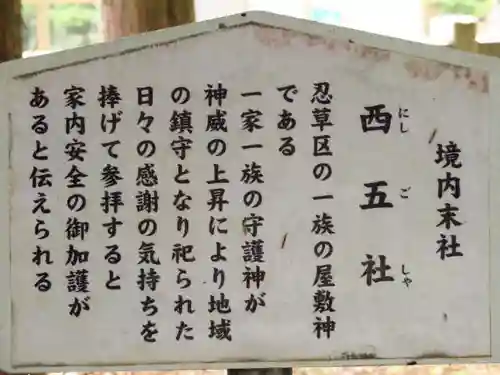 境内末社
西五社
にし ご しゃ
忍草区の一族の屋敷神
である
一家一族の守護神が
神威の上昇により地域
の鎮守となり祀られた
日々の感謝の気持ちを
捧げて参拝すると
家内安全の御加護が
あると伝えられる